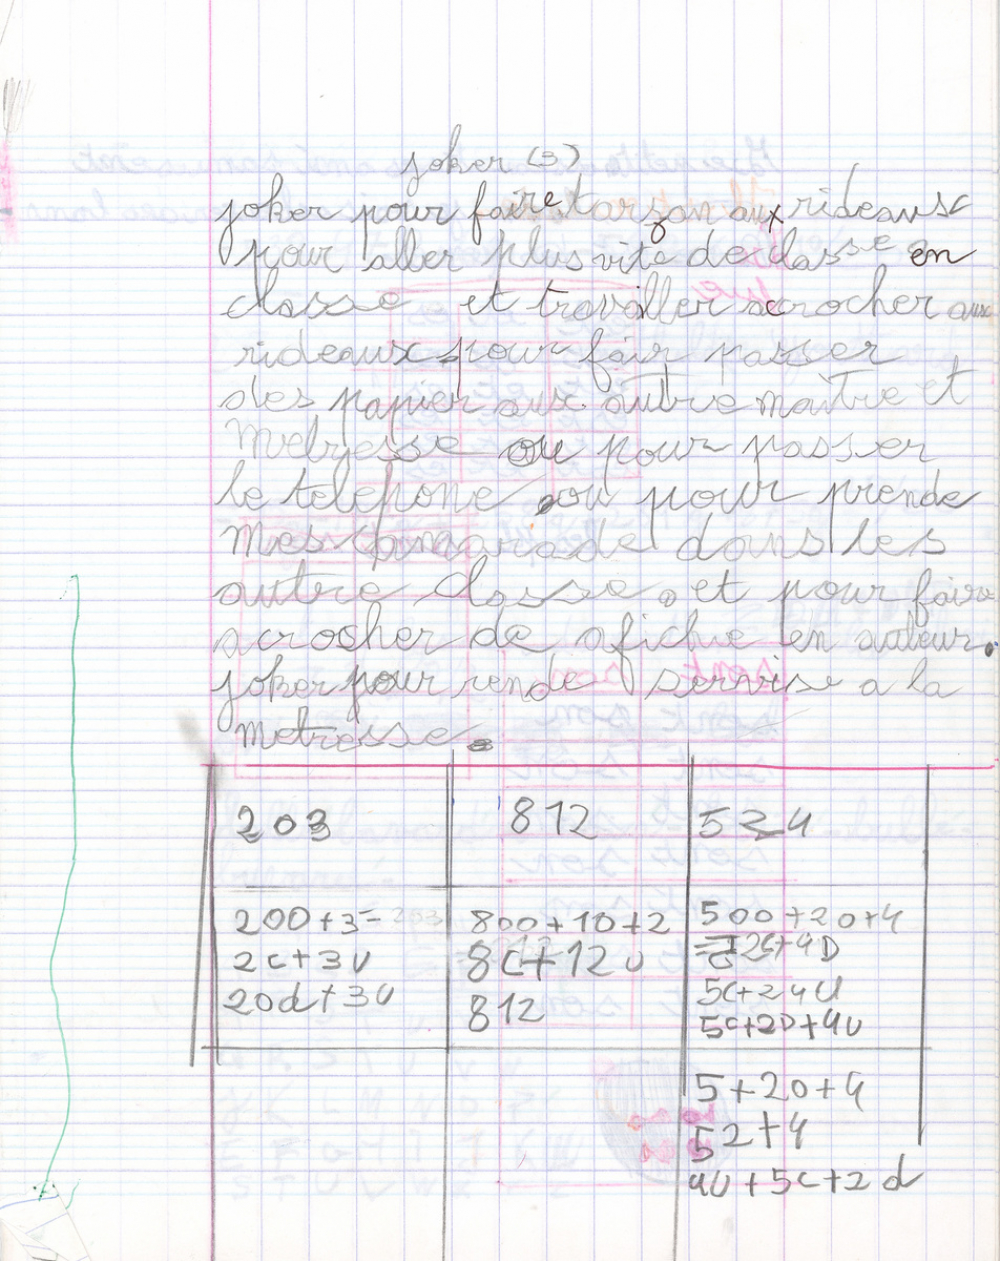 joker (3)
joker pour faire tarzan aux rideausc
pour aller plus vite de classe en
classe et travailler acrocher aux
rideaux pour fair passer
des papier aux autre maitre et
Metresse ou pour passer
le telepone ou pour prende
Mes camarade dans les
autre classe. et pour faire
acrocher de afiche en auteur.
joker pour rende servise a la
metresse.
203 812 524
200+3=203 800+10+2 500+20+4
2c+3U 8c+12U 52c+4D
20d+3U 812 5c+24U
5c+2D+4U
5+20+4
52+4
4U+5c+2d